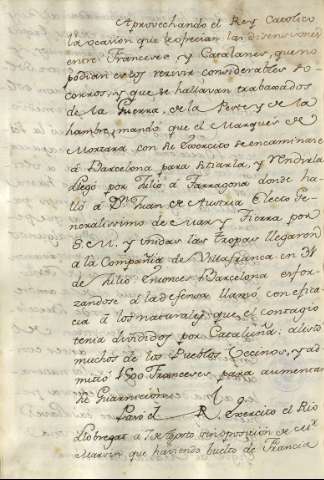 Aprovechando el Rey Catolico
la ocasion que le ofrecian las divensiones
entre Franceses y Catalanes, que no
podian estos recivir considerables so-
corros, y que se hallavan trabaxados
de la Guerra, de la Peste, y de la
hambre, mandó que el Marques de
Mortara, con el Exercito se encaminase
á Barcelona para sitiarla, y rendirla
llegó por Julio á Tarragona donde ha-
lló a Dn. Juan de Austria Electo Ge-
neralissimo de Mar y Tierra por
S. M. y unidas las tropas llegaron
a la Compañia de Villafranca en 31
de Julio. Entonces Barcelona esfor-
zandose á la defensa llamó con efica-
cia á los naturales, que el contagio
tenia divididos por Cataluña: alistó
muchos de los Pueblos Vecinos, y ad-
mitió 1500 Franceses para aumentar
su Guarnicion.
Pasó el Rl. Exercito el Rio
Llobregat a 7 de Agosto, sin oposicion de Mr.
Marsin que haviendo buelto de Francia